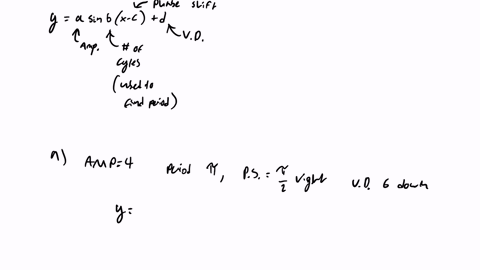 phase shift
y = a sin b (x-c) + d
Amp.
# of
cycles
V.D.
(used to
find period)
a) AMP=4 Period π, P.S. = π/2 right V.D. 6 down
y=